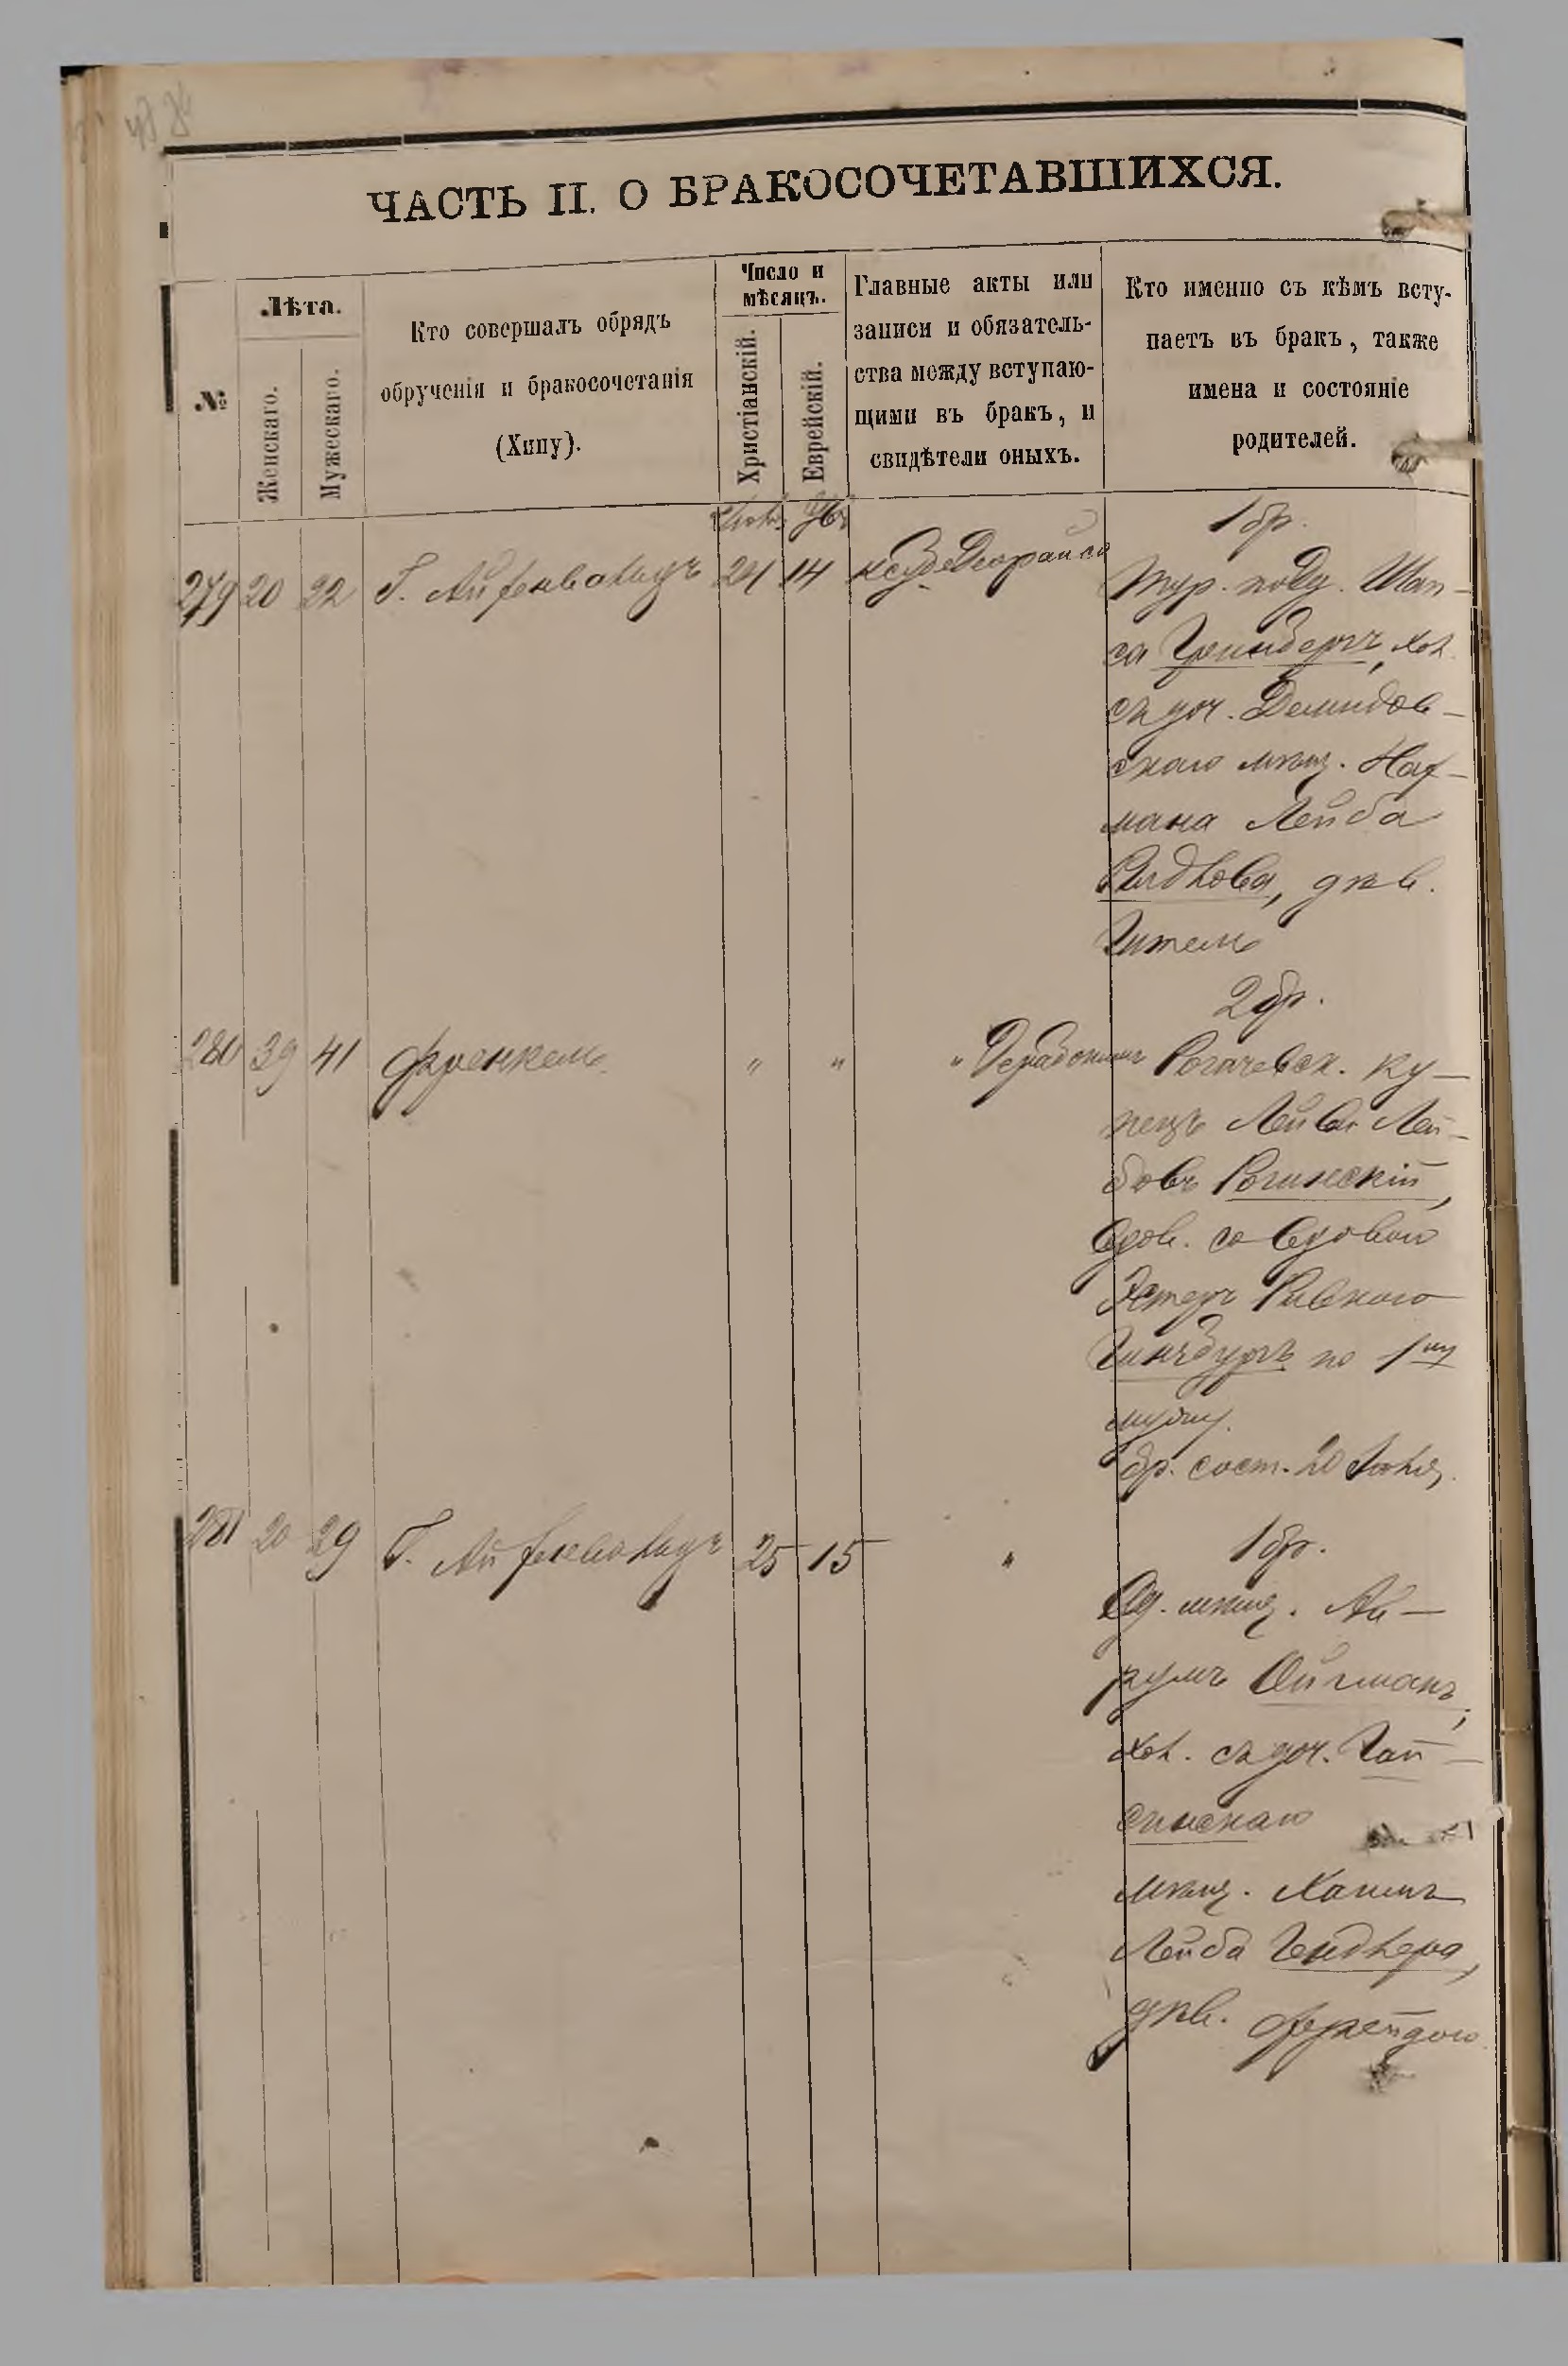 ЧАСТЬ II. О БРАКОСОЧЕТАВШИХСЯ.
№
Лѣта.
Женскаго.
Мужескаго.
Кто совершалъ обрядъ
обрученія и бракосочетанія
(Хипу).
Число и
мѣсяцъ.
Христіанскій.
Еврейскій.
Главные акты или
записи и обязатель-
ства между вступаю-
щими въ бракъ, и
свидѣтели оныхъ.
Кто именно съ кѣмъ всту-
паетъ въ бракъ, также
имена и состояніе
родителей.
279 20 22 Г. Айзенвальдъ 24 14
1 бр.
Тур. подд. Шап-
са Гринбергъ, хол.
съ доч. Демидов-
скаго мѣщ. Нах-
мана Лейба
дѣв.
Гитель
280 39 41 Френкель " " "
2 бр.
Рогачевск. ку-
пецъ Лейба Лей-
бовъ Рогинскій,
вдов. со вдовою
Эстеръ Ривкою
Гинзбургъ по 1му
мужу.
бр. сост. 20 Іюня.
281 20 29 Г. Айзенвальдъ 25 15 "
1 бр.
Од. мѣщ. Аб-
румъ Ойгманъ,
хол. съ доч. Гай-
синскаго
мѣщ. Хаимъ
Лейба
дѣв. Фрейдою